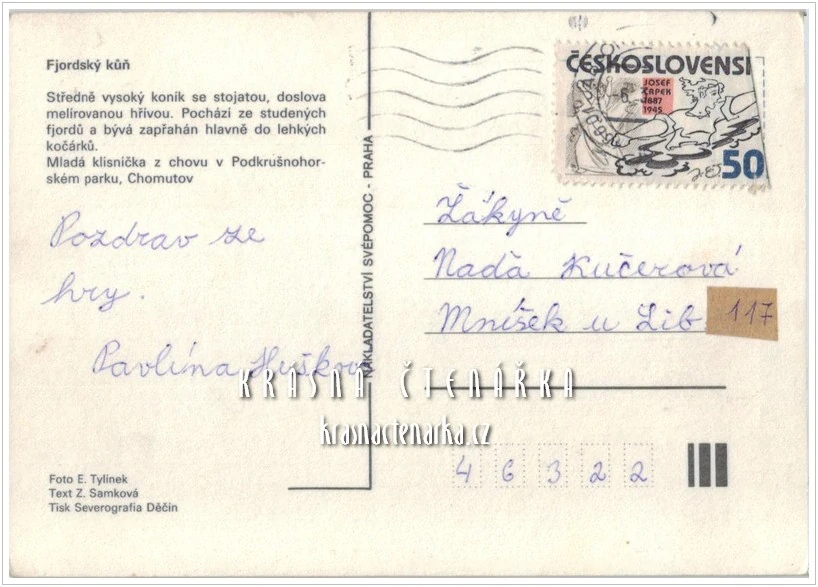 Fjordský kůň
Středně vysoký koník se stojatou, doslova
melírovanou hřívou. Pochází ze studených
fjordů a bývá zapřahán hlavně do lehkých
kočárků.
Mladá klisnička z chovu v Podkrušnohor-
ském parku, Chomutov
Pozdrav ze
hry.
Pavlína Huškov
Foto E. Tylínek
Text Z. Samková
Tisk Severografia Děčín
NAKLADATELSTVÍ SVÉPOMOC - PRAHA
ČESKOSLOVENS
JOSEF
ČAPEK
1887
1945
50
Žákyně
Naďa Kučerová
Mníšek u Lib
117
46322
KRASNA ČTENÁŘKA
krasnactenarka.cz